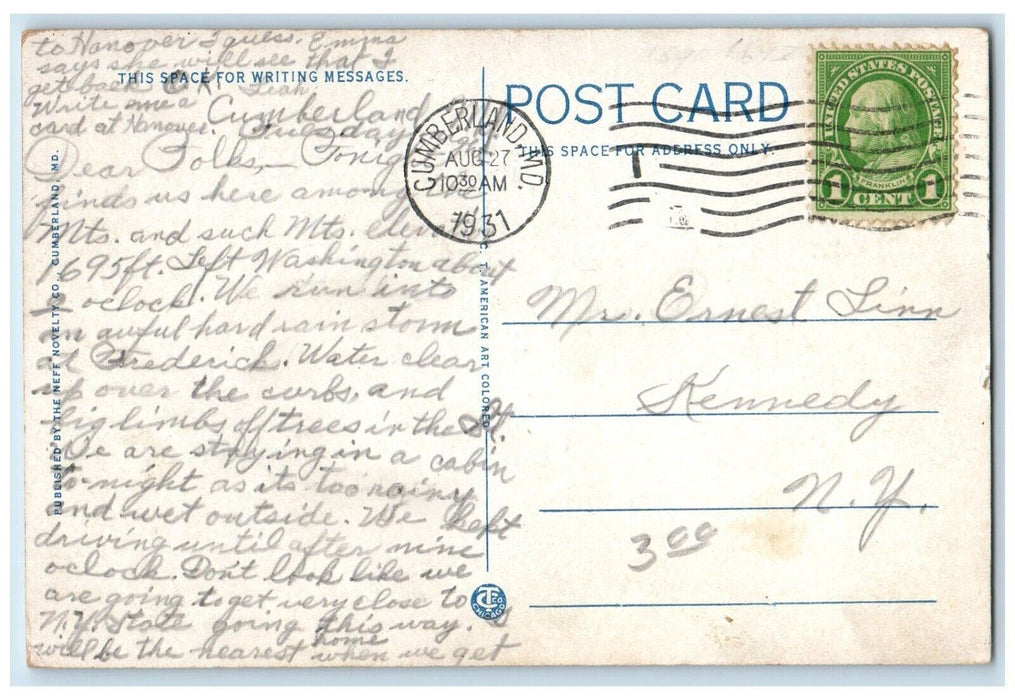 to Hanover I guess. Emma
says she will see that I
get back O.K. Leah
Write me a
card at Hanover.
THIS SPACE FOR WRITING MESSAGES.
Cumberland
Tuesday
Dear Folks,— Tonight
finds us here among the
Mts. and such Mts. elev.
1695ft. Left Washington about
2 oclock. We run into
an awful hard rain storm
at Frederick. Water clear
up over the curbs, and
big limbs off trees in the St.
We are staying in a cabin
to-night as its too rainy
and wet outside. We kept
driving until after nine
oclock. Don't look like we
are going to get very close to
N.Y. State going this way. I
will be the nearest home when we get
PUBLISHED BY THE NEFF NOVELTY CO., CUMBERLAND, MD.
C. T. AMERICAN ART COLORED
POST CARD
THIS SPACE FOR ADDRESS ONLY.
CUMBERLAND, MD.
AUG 27
10 30 AM
1931
UNITED STATES POSTAGE
FRANKLIN
1 CENT 1
Mr. Ernest Linn
Kennedy
N.Y.
3 00
CT CO
CHICAGO